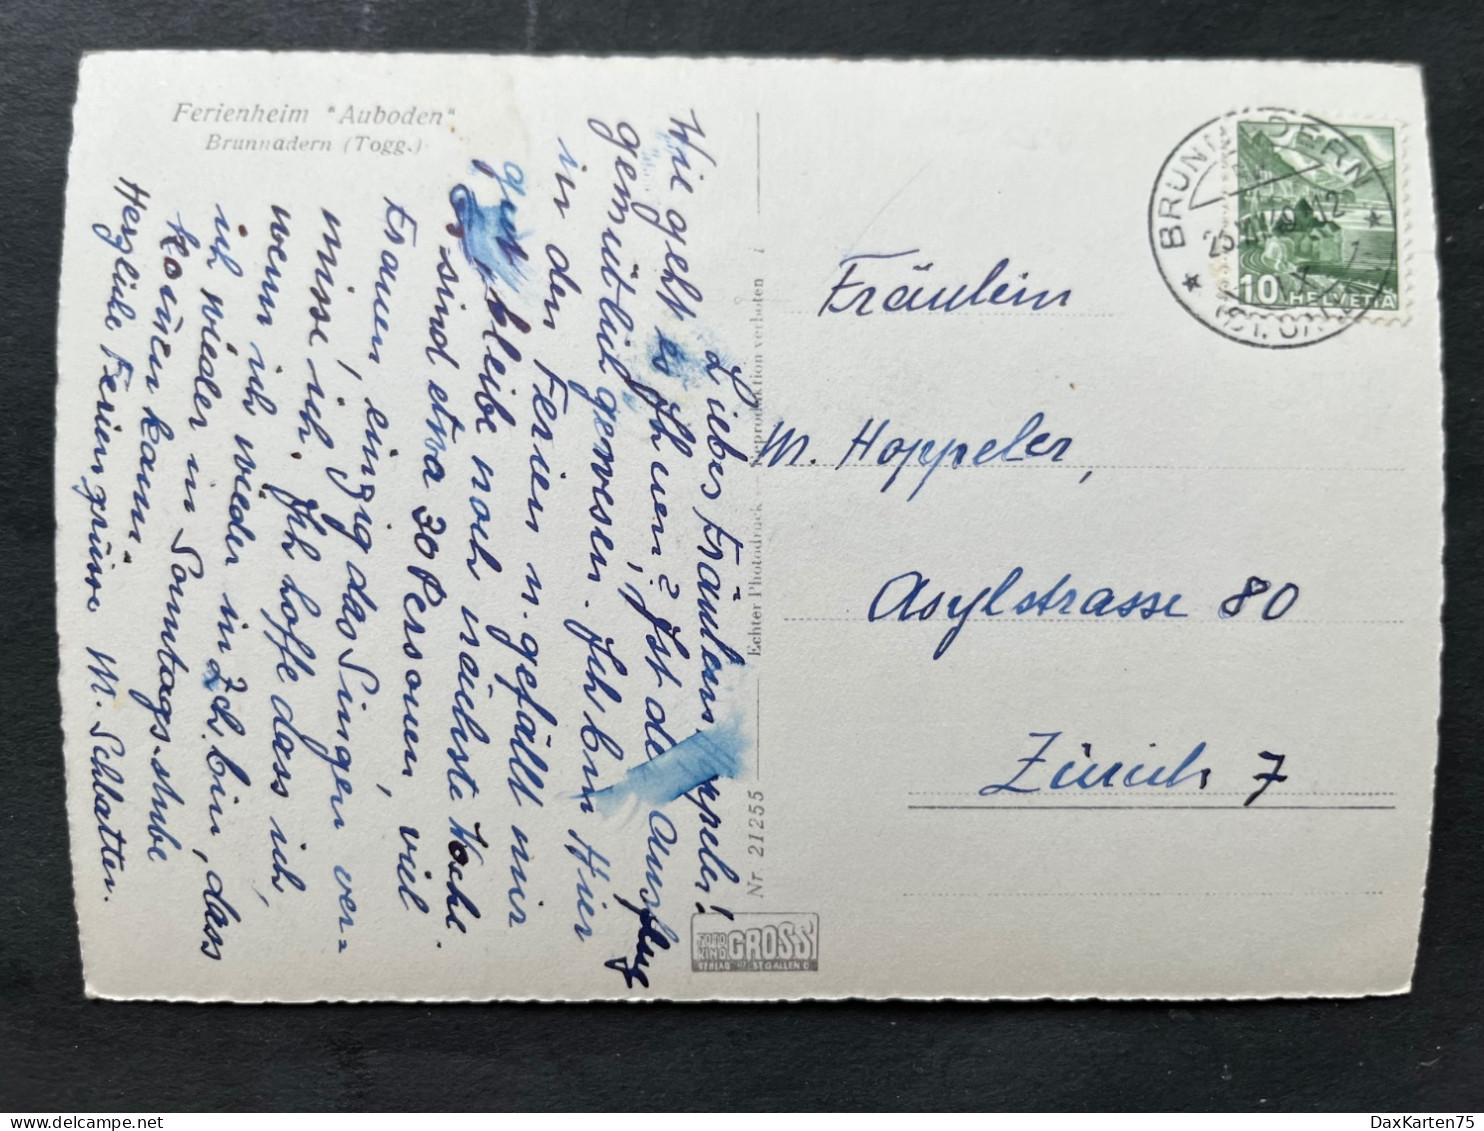 Ferienheim "Auboden"
Brunnadern (Togg.)
Liebes Fräulein Hoppeler!
Wie geht es Ihnen? Ist der Ausflug
gemütlich gewesen. Ich bin hier
in den Ferien u. gefällt mir
gut, bleibe noch nächste Woche.
Es sind etwa 30 Personen, viel
Frauen, einzig das Singen ver=
misse ich. Ich hoffe dass ich,
wenn ich wieder in Zch. bin, dass
ich wieder in Sonntagsstube
kommen kann.
Herzliche Feriengrüsse M. Schlatter.
Nr. 21255
Echter Photodruck
Reproduktion verboten
FOTO KIND GROSS
VERLAG ST GALLEN
Fräulein
M. Hoppeler,
Asylstrasse 80
Zürich 7
BRUNNADERN
10 HELVETIA
DaxKarten75